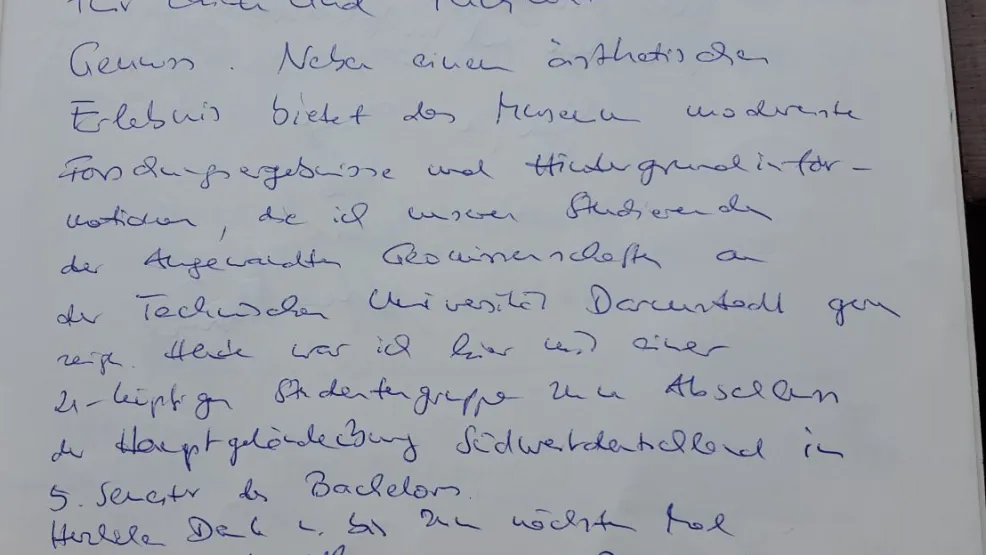 für und
Genuss. Neben einem ästhetischen
Erlebnis bietet das Museum modernste
Forschungsergebnisse und Hindergrundinfor-
mationen, die ich unseren Studierenden
der Angewandten Geowissenschaften an
der Technischen Universität Darmstadt gern
zeige. Heute war ich hier mit einer
21-köpfigen Studentengruppe zum Abschluss
der Hauptgeländeübung Südwestdeutschland im
5. Semester des Bachelors.
Herzlichen Dank u. bis zum nächsten Mal